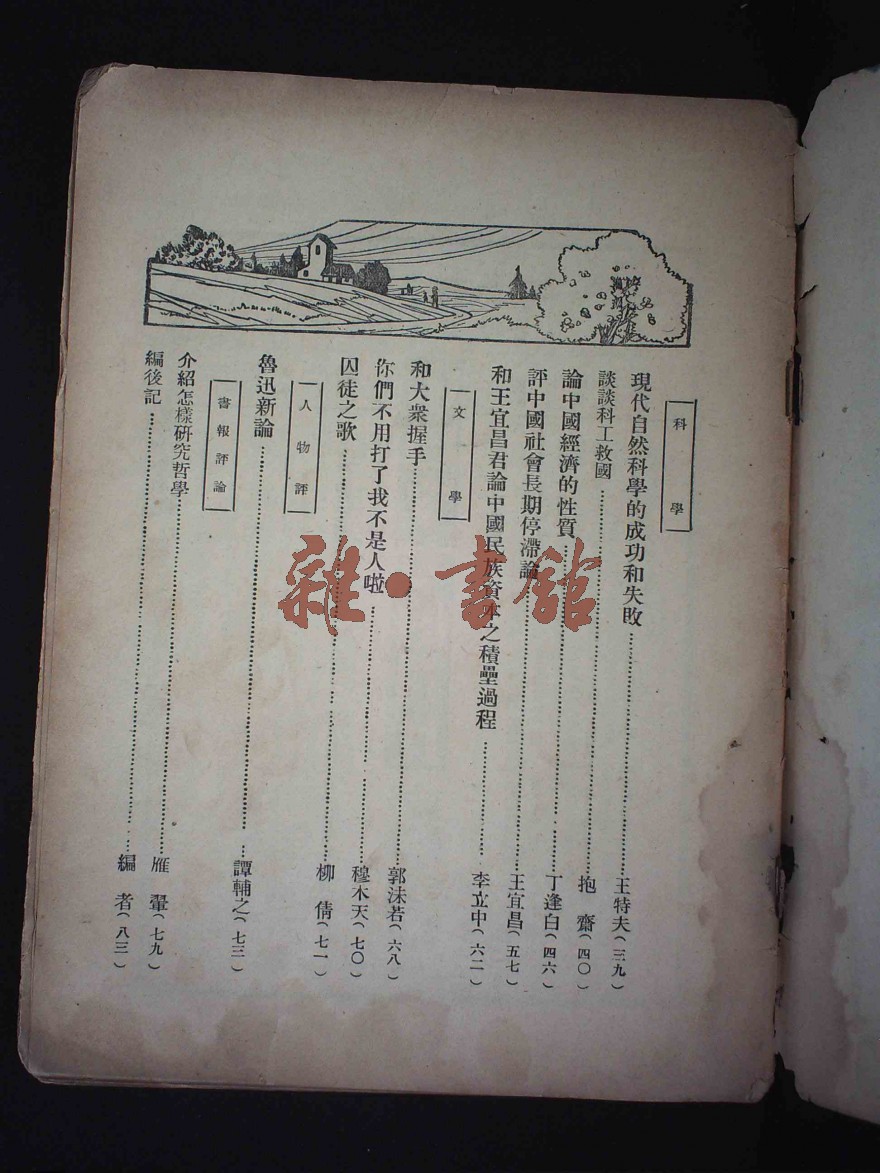 科學
現代自然科學的成功和失敗……王特夫(三九)
談談科工救國……抱齋(四〇)
論中國經濟的性質……丁逢白(四六)
評中國社會長期停滯論……王宜昌(五七)
和王宜昌君論中國民族資本之積壘過程……李立中(六二)
文學
和大衆握手……郭沫若(六八)
你們不用打了我不是人啦……穆木天(七〇)
囚徒之歌……柳倩(七一)
人物評
魯迅新論……譚輔之(七三)
書報評論
介紹怎樣研究哲學……雁翬(七九)
編後記……編者(八三)
雜·書館